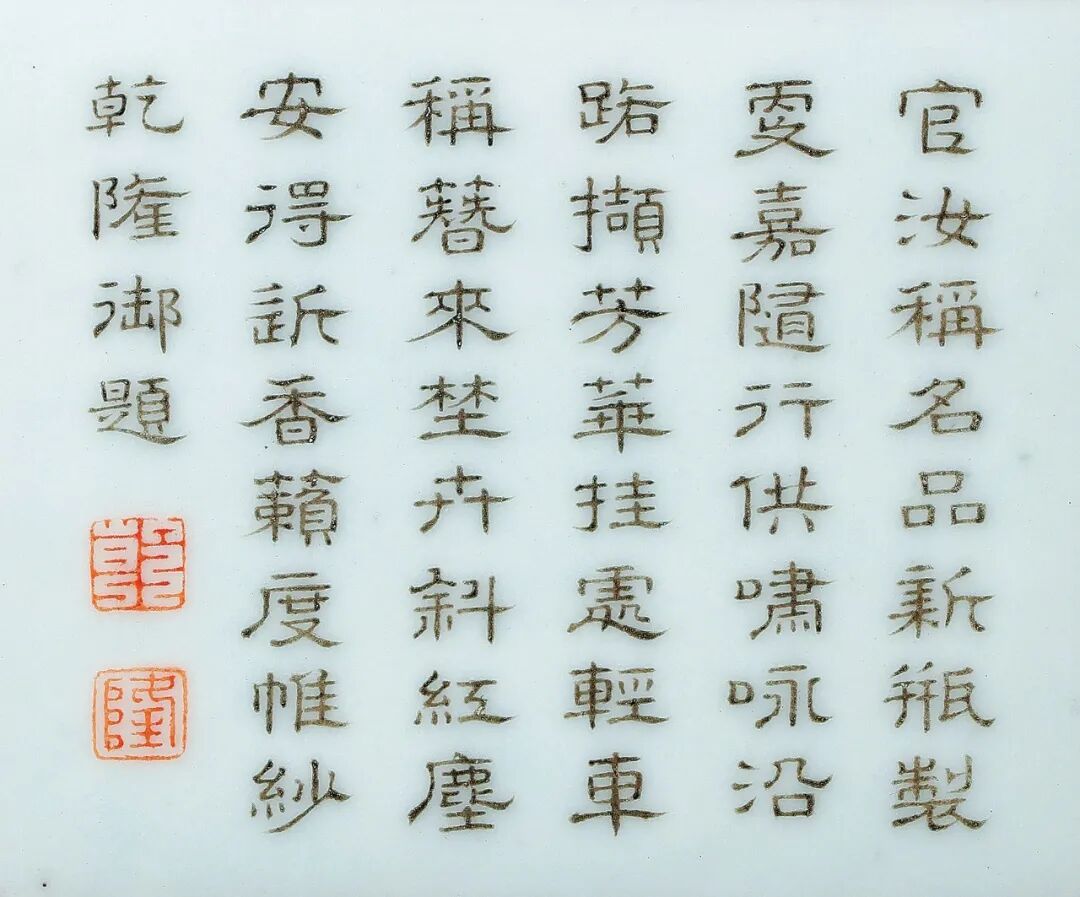 官汝稱名品新瓶製
更嘉隨行供嘯咏沿
路擷芳華挂處輕車
稱簪來埜卉斜紅塵
安得近香籟度帷紗
乾隆御題
乾
隆